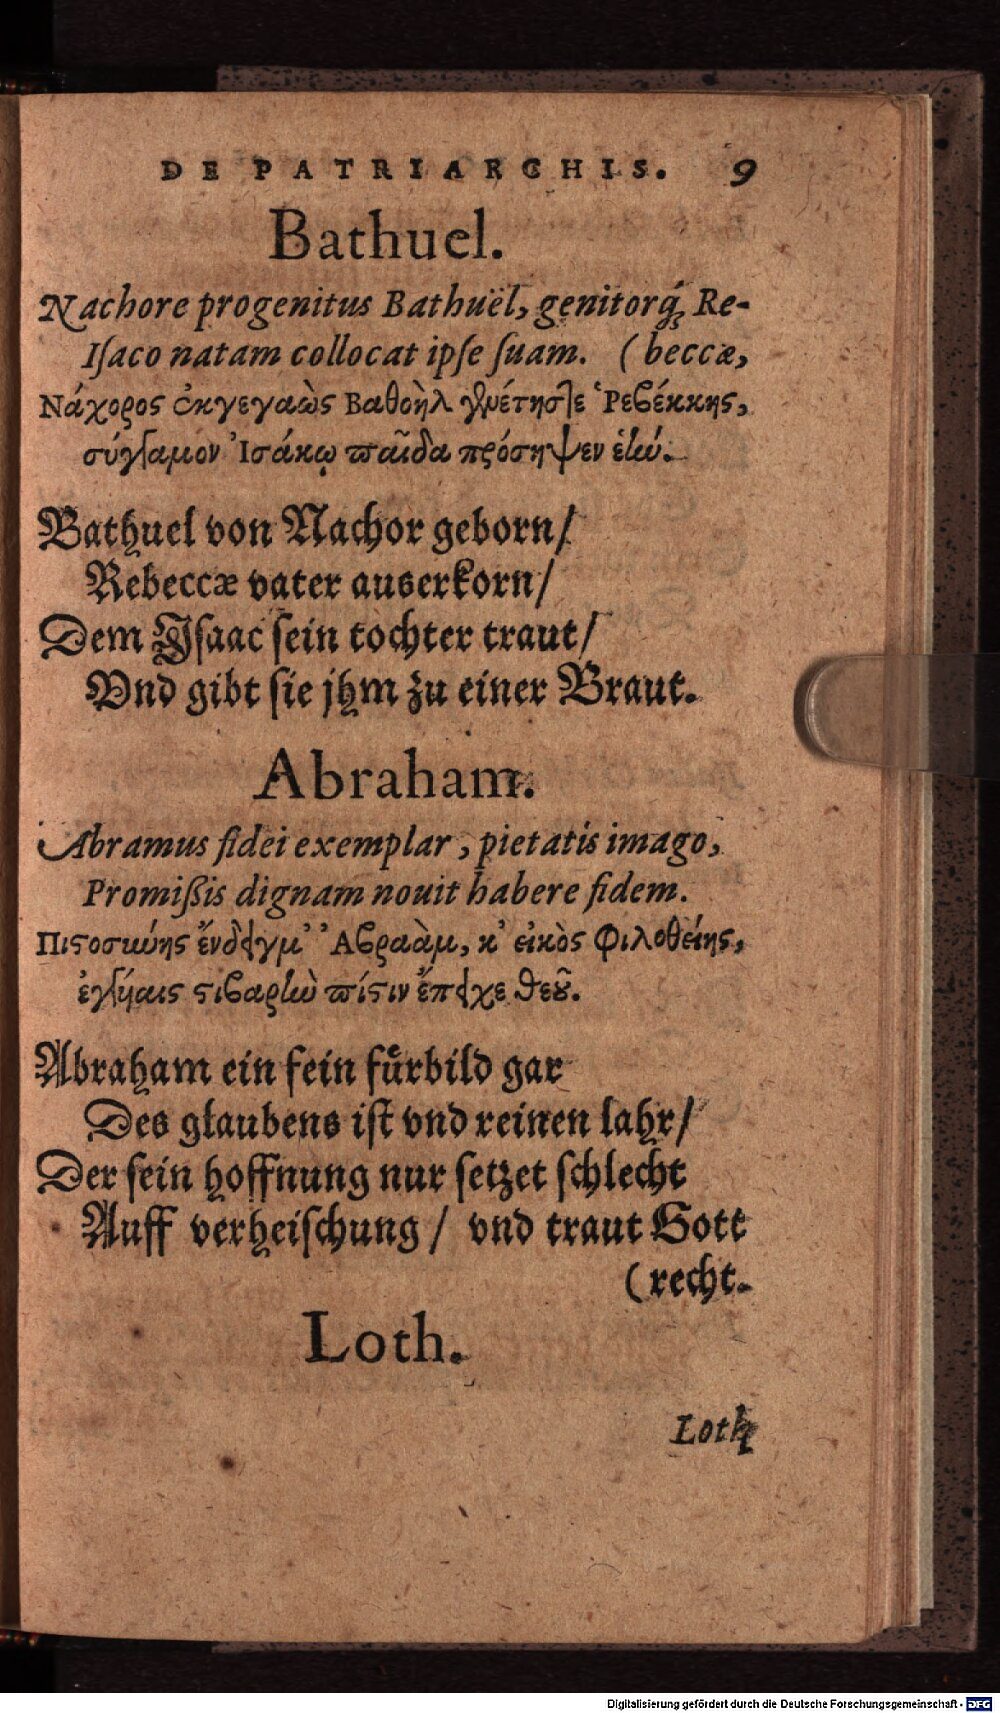 DE PATRIARCHIS. 9
Bathuel.
Nachore progenitus Bathuël, genitorq́ꝫ Re-
Iſaco natam collocat ipſe ſuam. (beccæ,
Νάχορος ἐκγεγαὼς Βαθοὴλ γενέτης τε Ῥεβέκκης,
σύγγαμον Ἰσάκῳ παῖδα πρόσηψεν ἑήν.
Bathuel von Nachor geborn/
Rebeccæ vater auserkorn/
Dem Yſaac ſein tochter traut/
Vnd gibt ſie jhm zu einer Braut.
Abraham.
Abramus fidei exemplar, pietatis imago,
Promißis dignam nouit habere fidem.
Πιστοσύνης ἔνδειγμ' Ἀβραὰμ, κ' εἰκὸς Φιλοθείης,
στιβαρὴν πίστιν ἔπειχε θεοῦ.
Abraham ein fein fuͤrbild gar
Des glaubens iſt vnd reinen lahr/
Der ſein hoffnung nur ſetzet ſchlecht
Auff verheiſchung / vnd traut Gott
(recht.
Loth.
Loth
Digitalisierung gefördert durch die Deutsche Forschungsgemeinschaft - DFG